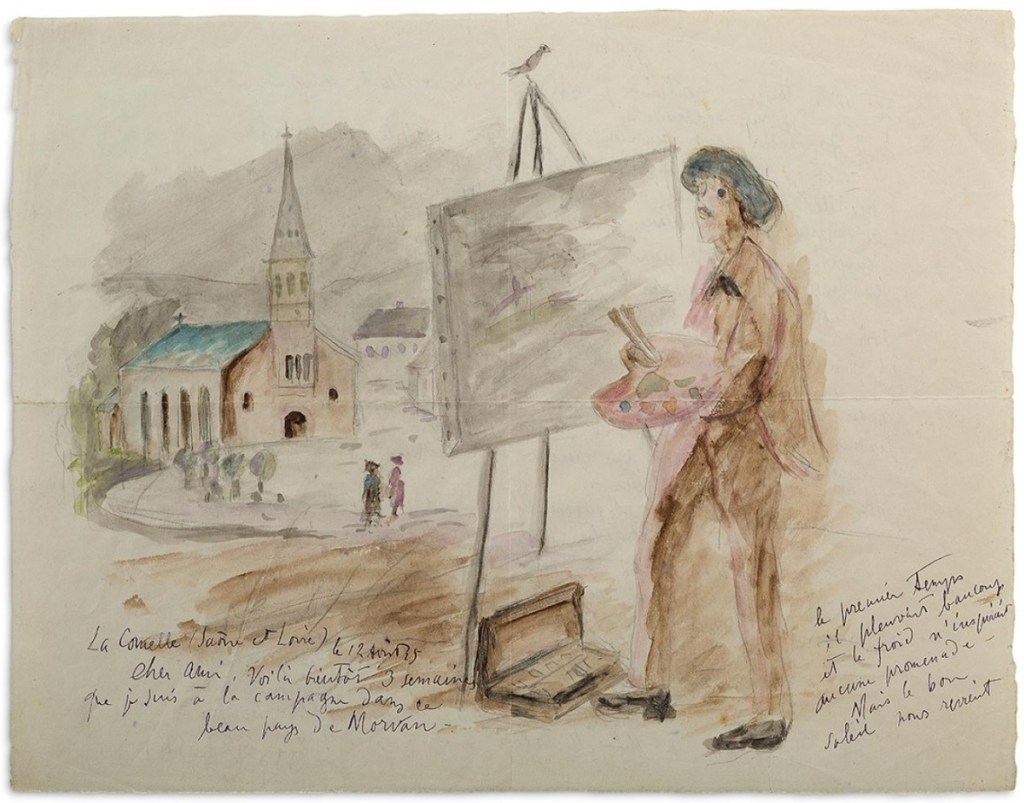 La Comelle (Saône et Loire) le 12 Août 25
Cher Ami, Voilà bientôt 3 semaines
que je suis à la campagne dans ce
beau pays de Morvan –
le premier temps
il pleuvait beaucoup
et le froid n'inspirait
aucune promenade –
Mais le bon
soleil nous revient